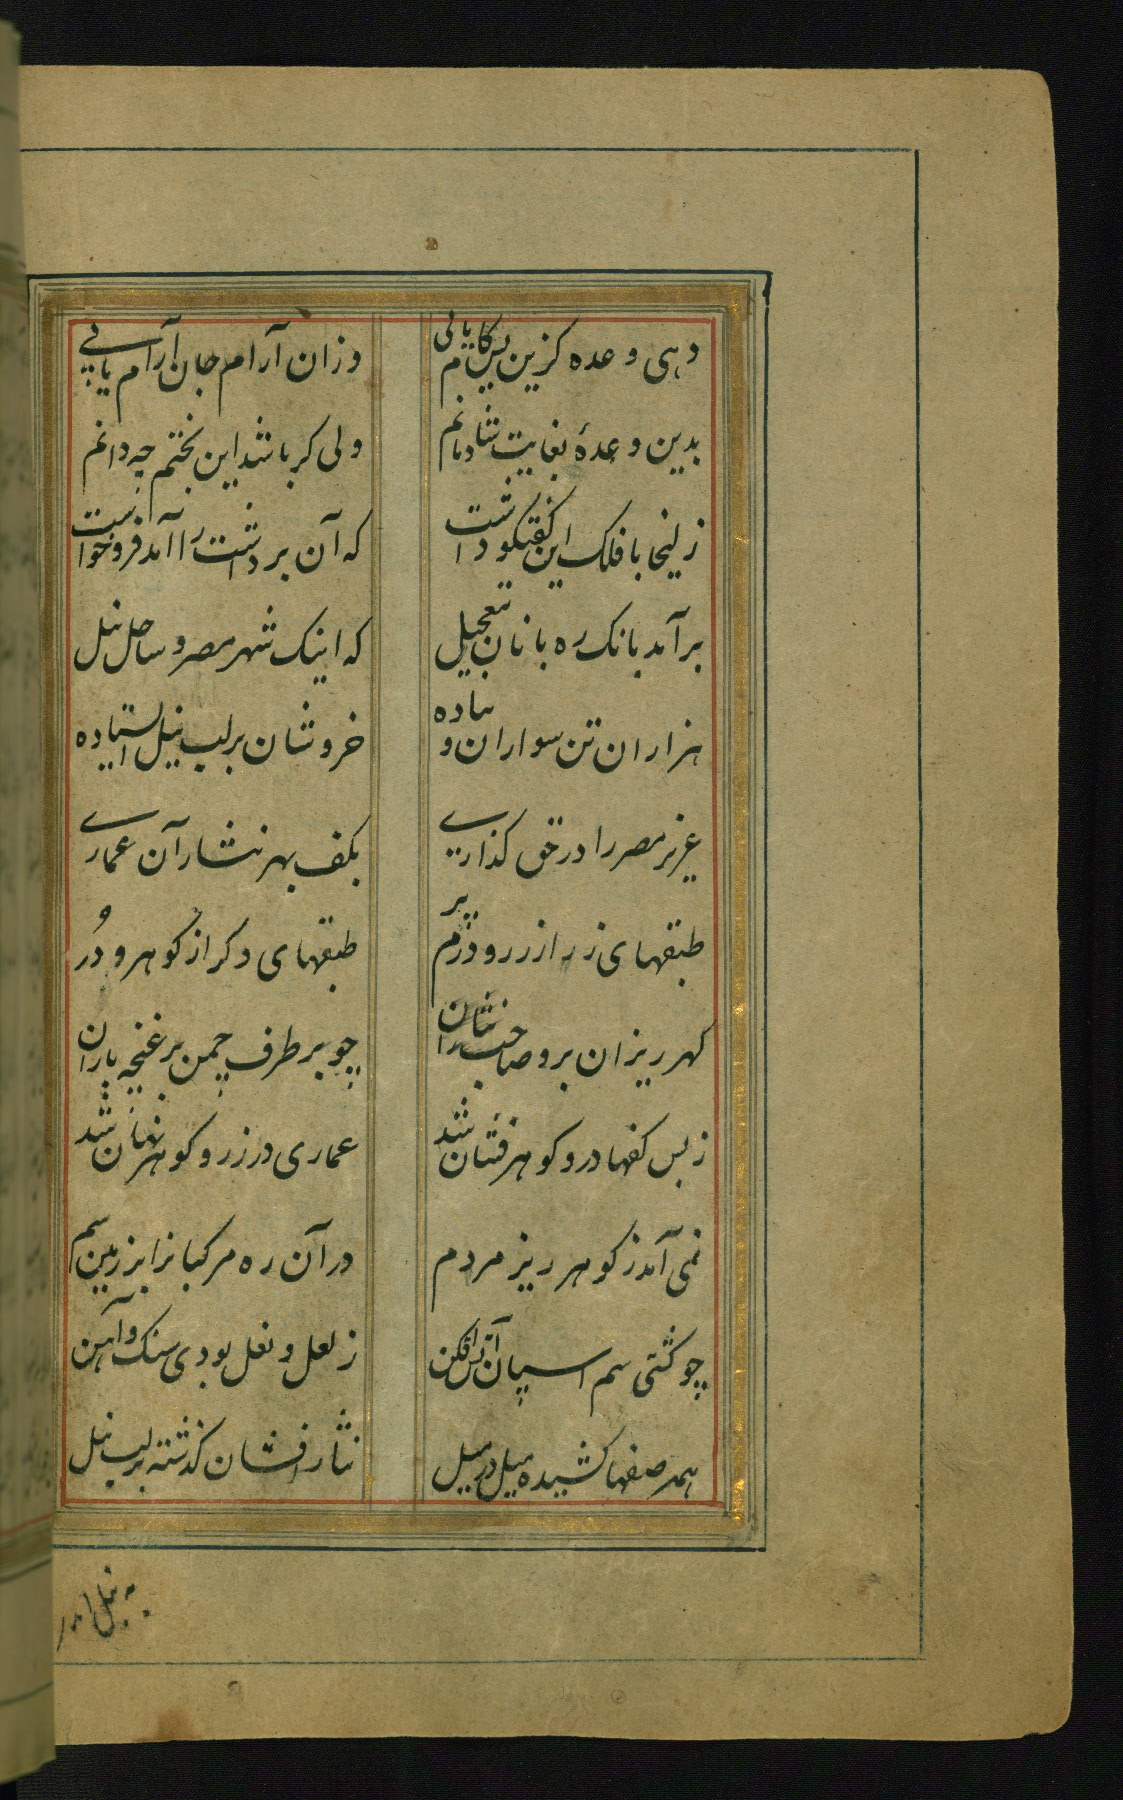 دهی وعده کزین پس کام یابی وزان آرام جان آرام یابی
بدین وعدهٔ بغایت شادمانم ولی کر باشد این بختم چه دانم
زلیخا با فلک این کفتکو داشت که آن برداشت را آمد فروخواست
برآمد بانک ره بانان بتعجیل که اینک شهر مصر و ساحل نیل
هزاران تن سواران و پیاده خروشان بر لب نیل ایستاده
عزیز مصر را در حق کذاری بکف بهر نثار آن عماری
طبقهای زر از زر و درم پر طبقهای دکر از کوهر و دُر
کهر ریزان برو صاحب نثاران چو بر طرف چمن بر غنچه باران
ز بس کفها درو کوهر فشان شد عماری در زر و کوهر نهان شد
نمی آمد ز کوهر ریز مردم در آن ره مرکبانرا بر زمین سم
چو کشتی سم اسپان آتش افکن ز لعل و نعل بودی سنک و آهن
همه صفها کشیده میل در میل نثار افشان کذشته بر لب نیل
به نیل اندر